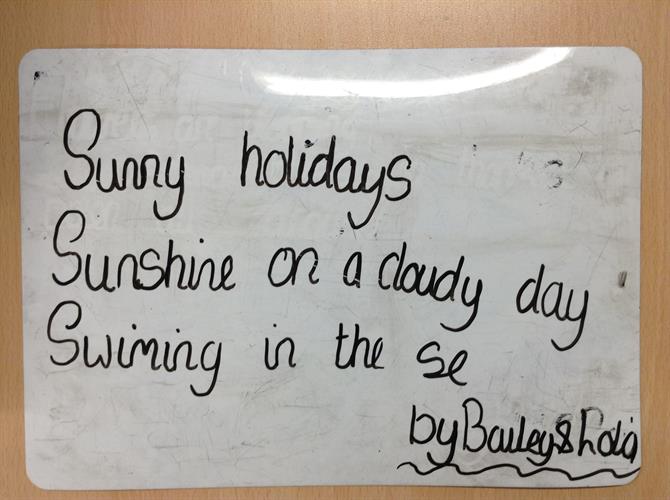 Sunny holidays
Sunshine on a cloudy day
Swiming in the se
by Bailey & Lola